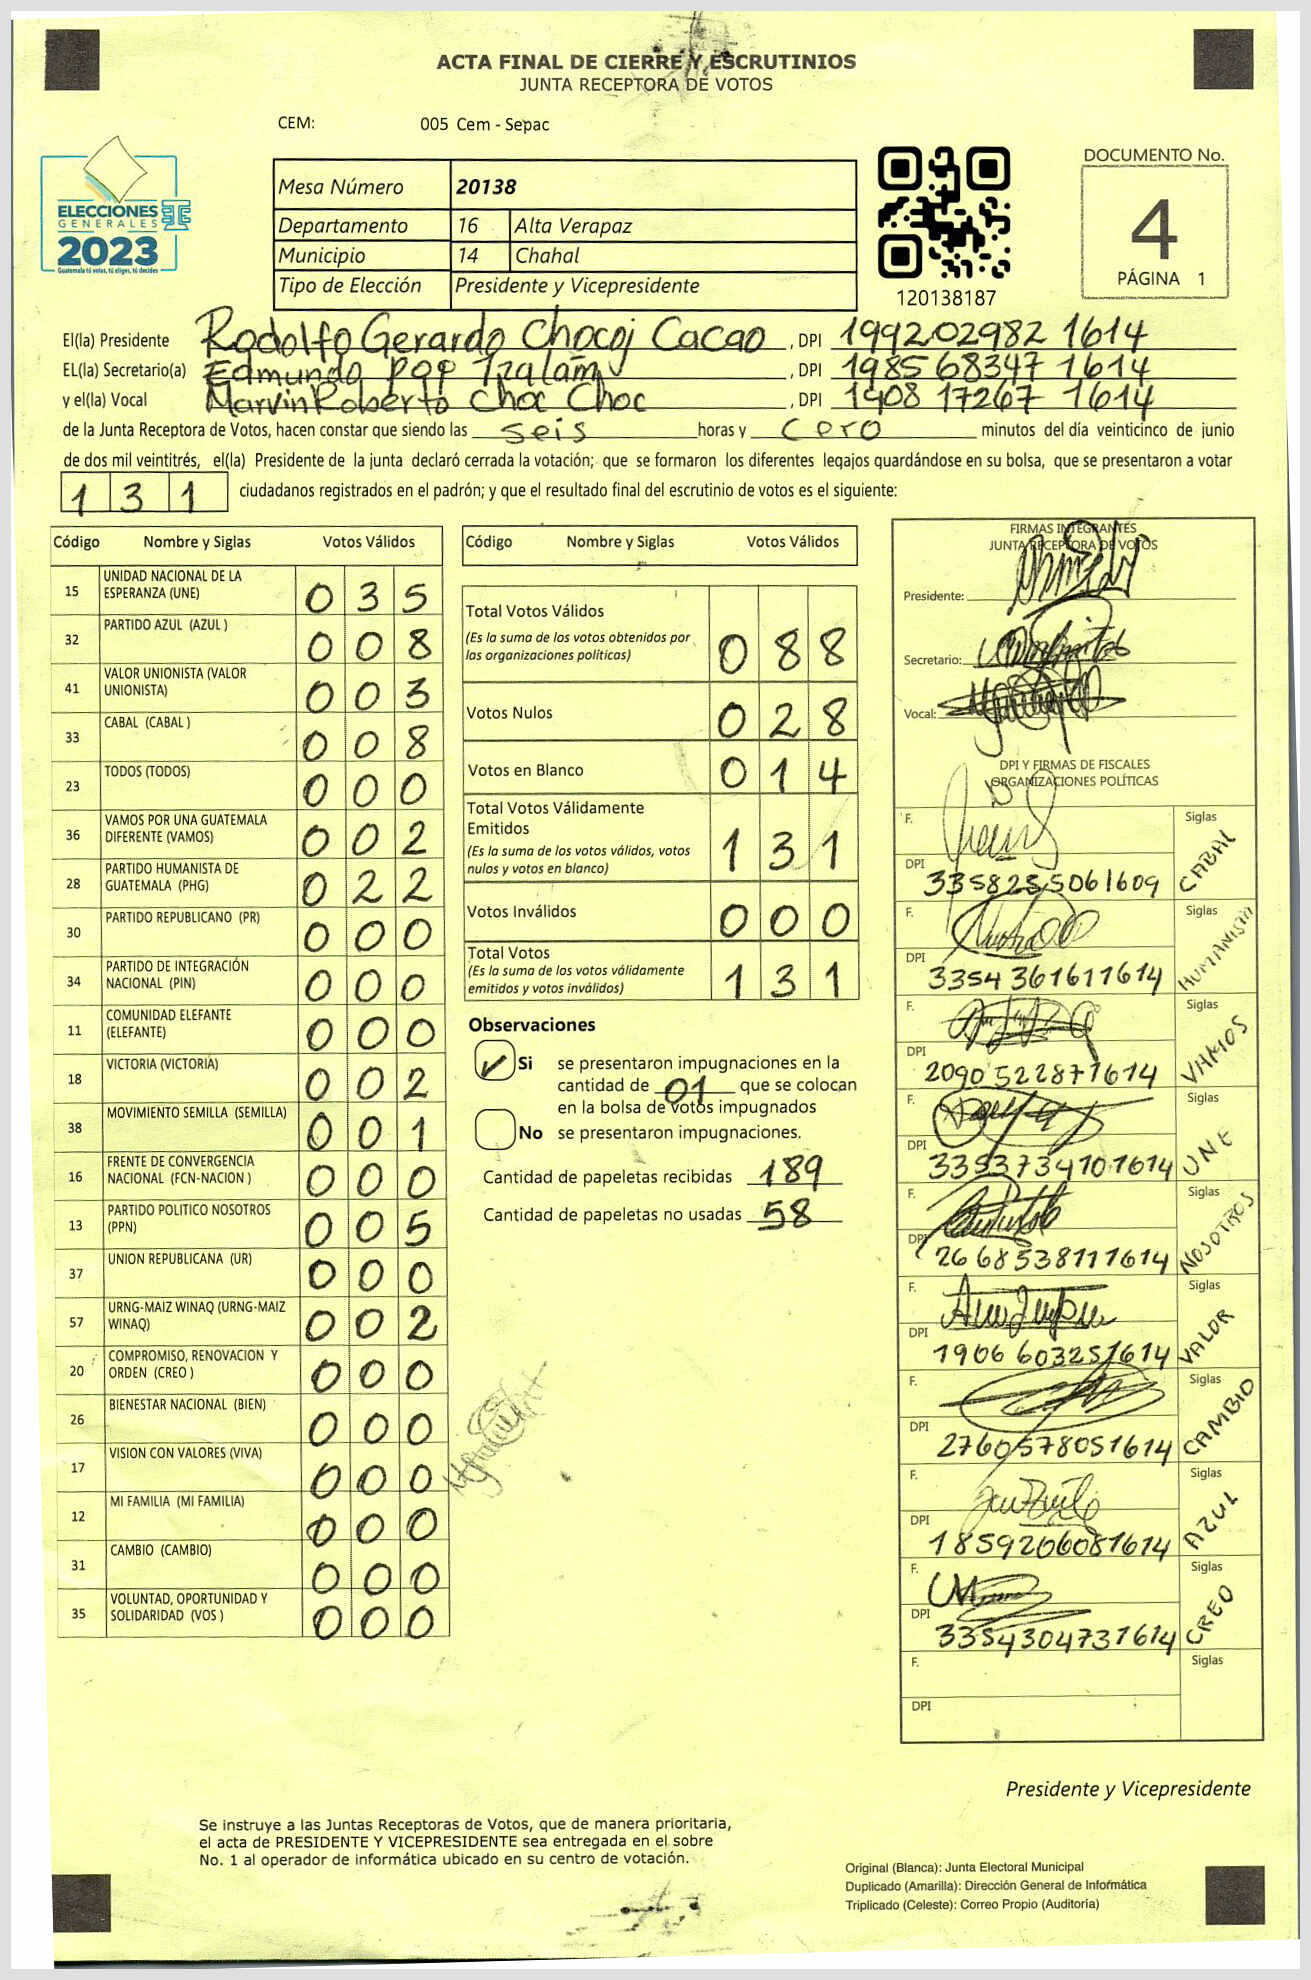 ACTA FINAL DE CIERRE Y ESCRUTINIOS
JUNTA RECEPTORA DE VOTOS
CEM: 005 Cem - Sepac
ELECCIONES
GENERALES
2023
Guatemala tú votas, tú eliges, tú decides
Mesa Número 20138
Departamento 16 Alta Verapaz
Municipio 14 Chahal
Tipo de Elección Presidente y Vicepresidente
120138187
DOCUMENTO No.
4
PÁGINA 1
El(la) Presidente Rodolfo Gerardo Chocoj Cacao, DPI 1992 02982 1614
EL(la) Secretario(a) Edmundo Pop Tzalam, DPI 1985 68347 1614
y el(la) Vocal Marvin Roberto Choc Choc, DPI 1908 17267 1614
de la Junta Receptora de Votos, hacen constar que siendo las seis horas y cero minutos del día veinticinco de junio
de dos mil veintitrés, el(la) Presidente de la junta declaró cerrada la votación; que se formaron los diferentes legajos guardándose en su bolsa, que se presentaron a votar
131 ciudadanos registrados en el padrón; y que el resultado final del escrutinio de votos es el siguiente:
Código Nombre y Siglas Votos Válidos
15 UNIDAD NACIONAL DE LA ESPERANZA (UNE) 035
32 PARTIDO AZUL (AZUL ) 008
41 VALOR UNIONISTA (VALOR UNIONISTA) 003
33 CABAL (CABAL ) 008
23 TODOS (TODOS) 000
36 VAMOS POR UNA GUATEMALA DIFERENTE (VAMOS) 002
28 PARTIDO HUMANISTA DE GUATEMALA (PHG) 022
30 PARTIDO REPUBLICANO (PR) 000
34 PARTIDO DE INTEGRACIÓN NACIONAL (PIN) 000
11 COMUNIDAD ELEFANTE (ELEFANTE) 000
18 VICTORIA (VICTORIA) 002
38 MOVIMIENTO SEMILLA (SEMILLA) 001
16 FRENTE DE CONVERGENCIA NACIONAL (FCN-NACION ) 000
13 PARTIDO POLITICO NOSOTROS (PPN) 005
37 UNION REPUBLICANA (UR) 000
57 URNG-MAIZ WINAQ (URNG-MAIZ WINAQ) 002
20 COMPROMISO, RENOVACION Y ORDEN (CREO ) 000
26 BIENESTAR NACIONAL (BIEN) 000
17 VISION CON VALORES (VIVA) 000
12 MI FAMILIA (MI FAMILIA) 000
31 CAMBIO (CAMBIO) 000
35 VOLUNTAD, OPORTUNIDAD Y SOLIDARIDAD (VOS ) 000
Código Nombre y Siglas Votos Válidos
Total Votos Válidos 088
(Es la suma de los votos obtenidos por
las organizaciones políticas)
Votos Nulos 028
Votos en Blanco 014
Total Votos Válidamente
Emitidos 131
(Es la suma de los votos válidos, votos
nulos y votos en blanco)
Votos Inválidos 000
Total Votos 131
(Es la suma de los votos válidamente
emitidos y votos inválidos)
Observaciones
Si se presentaron impugnaciones en la
cantidad de 01 que se colocan
en la bolsa de votos impugnados
No se presentaron impugnaciones.
Cantidad de papeletas recibidas 189
Cantidad de papeletas no usadas 58
FIRMAS INTEGRANTES
JUNTA RECEPTORA DE VOTOS
Presidente:
Secretario:
Vocal:
DPI Y FIRMAS DE FISCALES
ORGANIZACIONES POLÍTICAS
F. Siglas CABAL
DPI 3358255061609
F. Siglas HUMANISTA
DPI 3354361611614
F. Siglas VAMOS
DPI 2090522871614
F. Siglas UNE
DPI 3353734101614
F. Siglas NOSOTROS
DPI 2668538111614
F. Siglas VALOR
DPI 1906603251614
F. Siglas CAMBIO
DPI 2760578051614
F. Siglas AZUL
DPI 1859206081614
F. Siglas CREO
DPI 3354304731614
F. Siglas
DPI
Presidente y Vicepresidente
Se instruye a las Juntas Receptoras de Votos, que de manera prioritaria,
el acta de PRESIDENTE Y VICEPRESIDENTE sea entregada en el sobre
No. 1 al operador de informática ubicado en su centro de votación.
Original (Blanca): Junta Electoral Municipal
Duplicado (Amarilla): Dirección General de Informática
Triplicado (Celeste): Correo Propio (Auditoría)